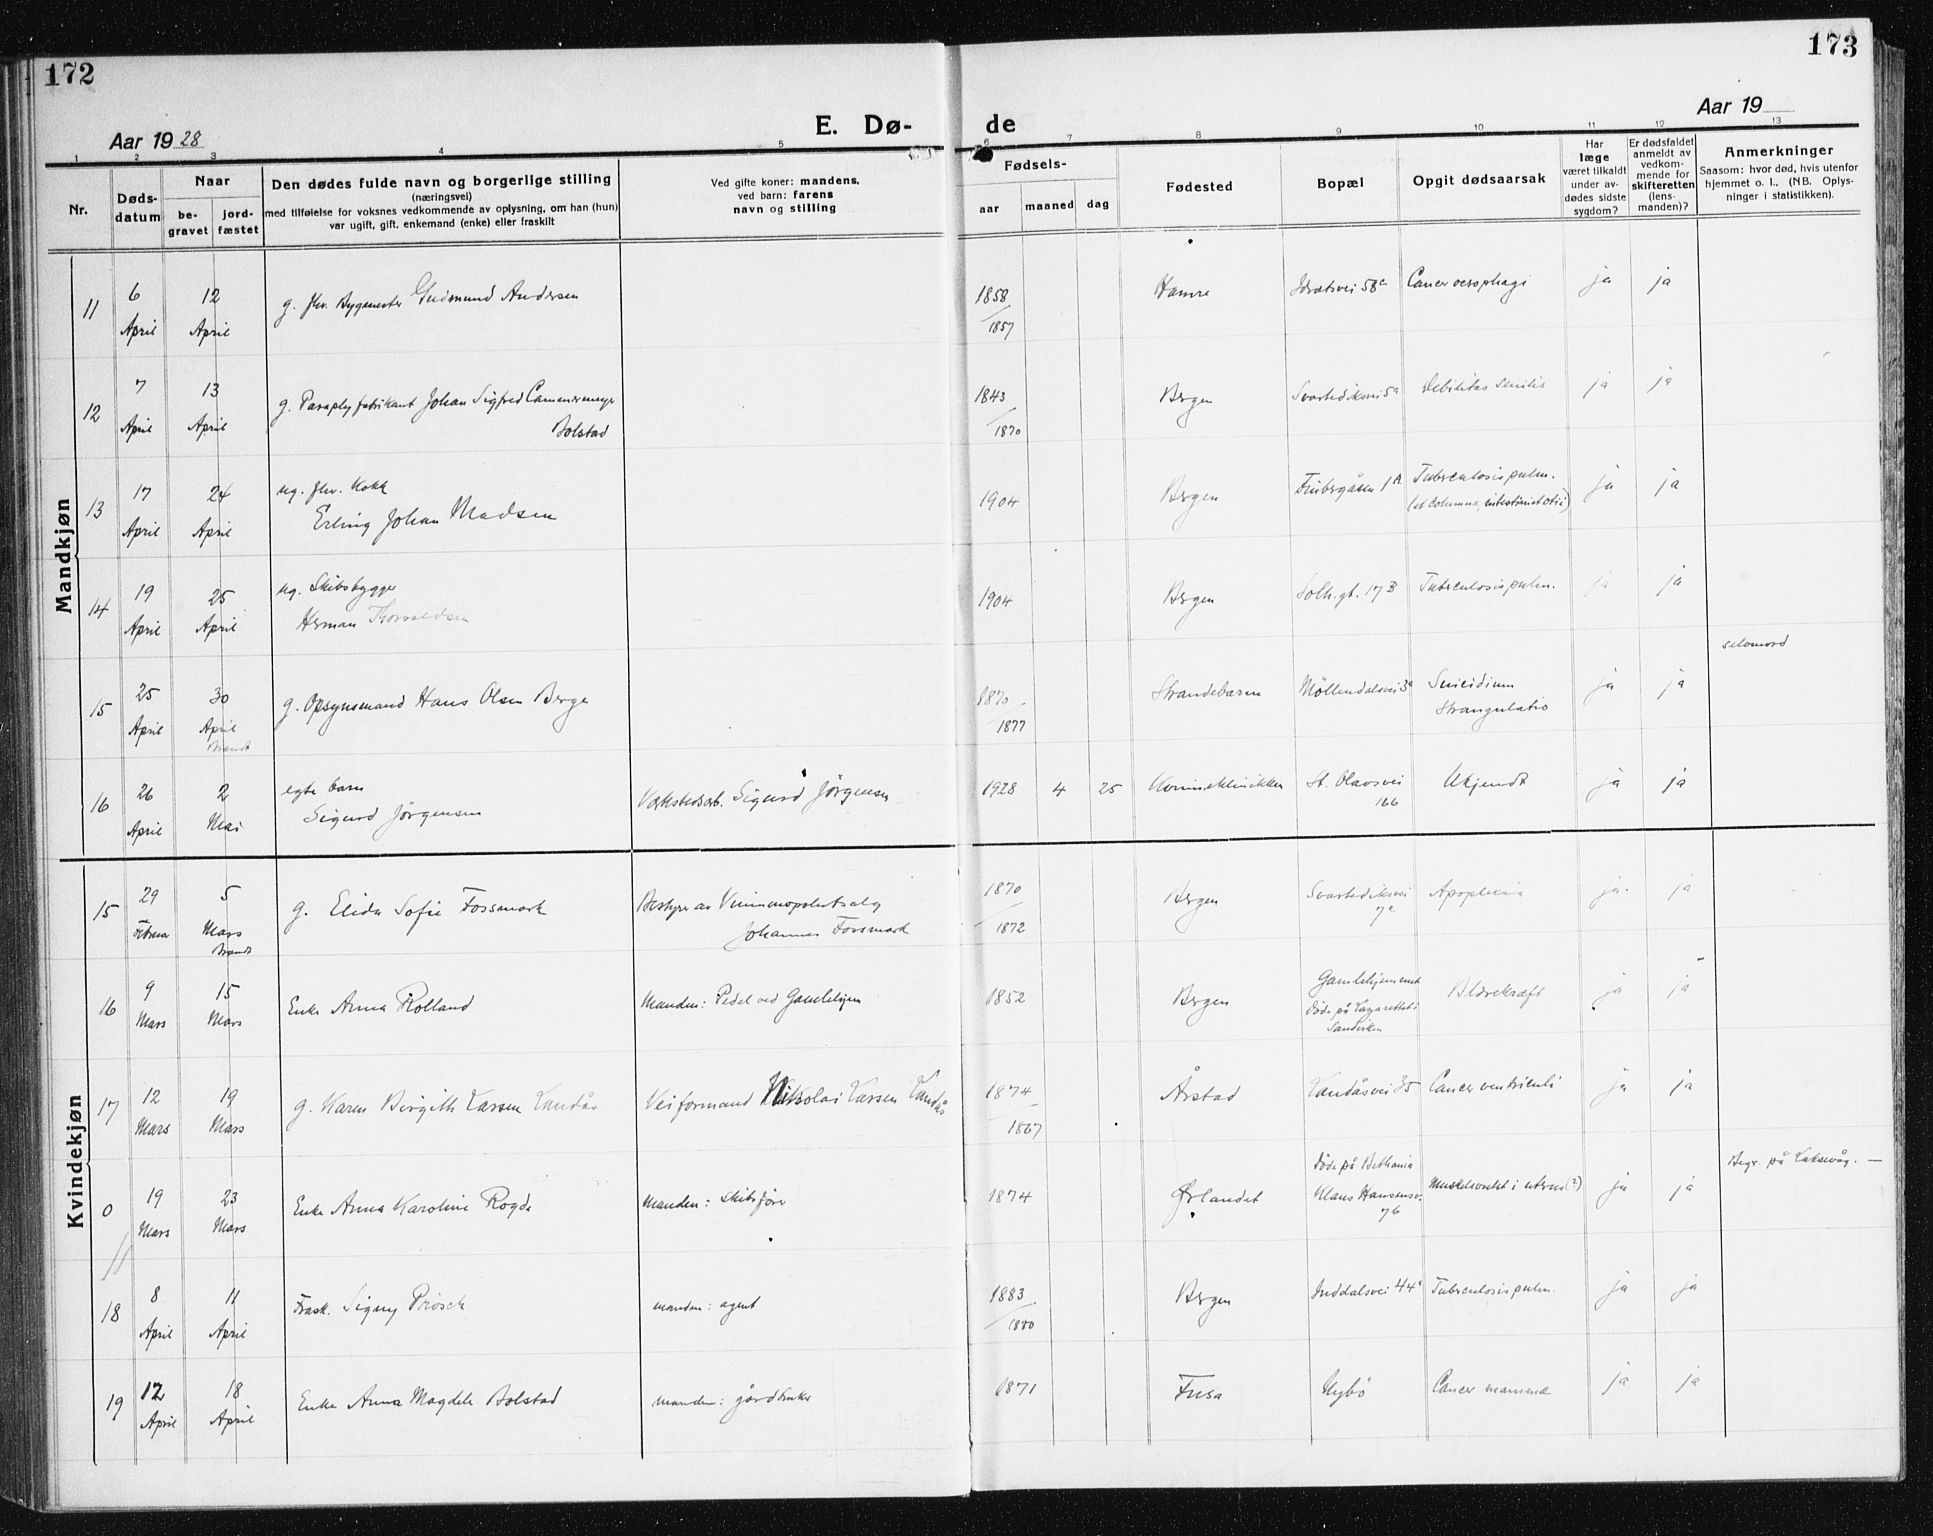 172
173
Aar 1928
E. Dø-
de
Aar 19
1 2 3 4 5 6 7 8 9 10 11 12 13
Nr.
Døds-
datum
Naar
be-
gravet
jord-
fæstet
Den dødes fulde navn og borgerlige stilling
(næringsvei)
med tilføielse for voksnes vedkommende av oplysning, om han (hun)
var ugift, gift, enkemand (enke) eller fraskilt
Ved gifte koner: mandens,
ved barn: farens
navn og stilling
Fødsels-
aar
maaned
dag
Fødested
Bopæl
Opgit dødsaarsak
Har
læge
været tilkaldt
under av-
dødes sidste
sygdom?
Er dødsfaldet
anmeldt av
vedkom-
mende for
skifteretten
(lens-
manden)?
Anmerkninger
Saasom: hvor død, hvis utenfor
hjemmet o. l.. (NB. Oplys-
ninger i statistikken).
Mandkjøn
11 6 April 12 April g. fhv. Bygmester Gudmund Andersen 1858/1857 Hamre Idrætsvei 58a Cancer oesophagi ja ja
12 7 April 13 April g. Paraplyfabrikant Johan Sigfred Camermeyer
Bolstad 1843/1870 Bergen Svartediksvei 5a Debilitas senilis ja ja
13 17 April 24 April ug. fhv. Kokk
Erling Johan Madsen 1904 Bergen 1A Tuberculosis pulm.
(et columna, intestini et otii) ja ja
14 19 April 25 April ug. Skibsbygger
Herman Thorvaldsen 1904 Bergen Solh.gt. 17B Tuberculosis pulm. ja ja
15 25 April 30 April Brændt g. Opsynsmand Hans Olsen Berge 1870/1877 Strandebarm Møllendalsvei 3a Suicidium
Strangulatio ja ja selvmord
16 26 April 2 Mai egte barn
Sigurd Jørgensen Verkstedsarb. Sigurd Jørgensen 1928 4 25 Kvinneklinikken St. Olavsvei
166 Ukjendt ja ja
Kvindekjøn
15 29 Februar 5 Mars Brændt g. Elida Sofie Fossmark Bestyrer av Vinmonopolets salg
Johannes Fossmark 1870/1872 Bergen Svartediksvei
7a Apoplexia ja ja
16 9 Mars 15 Mars Enke Anna Rolland Manden: Pedel ved Gamlehjem 1852 Bergen Gamlehjemmet
Døde på Lazarettet i
Sandviken Blærekræft ja ja
17 12 Mars 19 Mars g. Karen Birgith Larsen Landås Veiformand Nikolai Larsen Landås 1874/1867 Årstad Landåsvei 35 Cancer ventriculi ja ja
0 19 Mars 23 Mars Enke Anna Karoline Rogde Manden: Skibsfører 1874 Ørlandet Døde på Bethania
Klaus Hansensv.
76 Muskelsvulst i uterus (?) ja ja Begr. på Laksevåg. —
18 8 April 11 April Frask. Signy Prösch manden: agent 1883/1880 Bergen Inddalsvei 44a Tuberculosis pulm. ja ja
19 12 April 18 April Enke Anna Magdele Bolstad manden: gårdbruker 1871 Fusa Nybø Cancer mammae ja ja